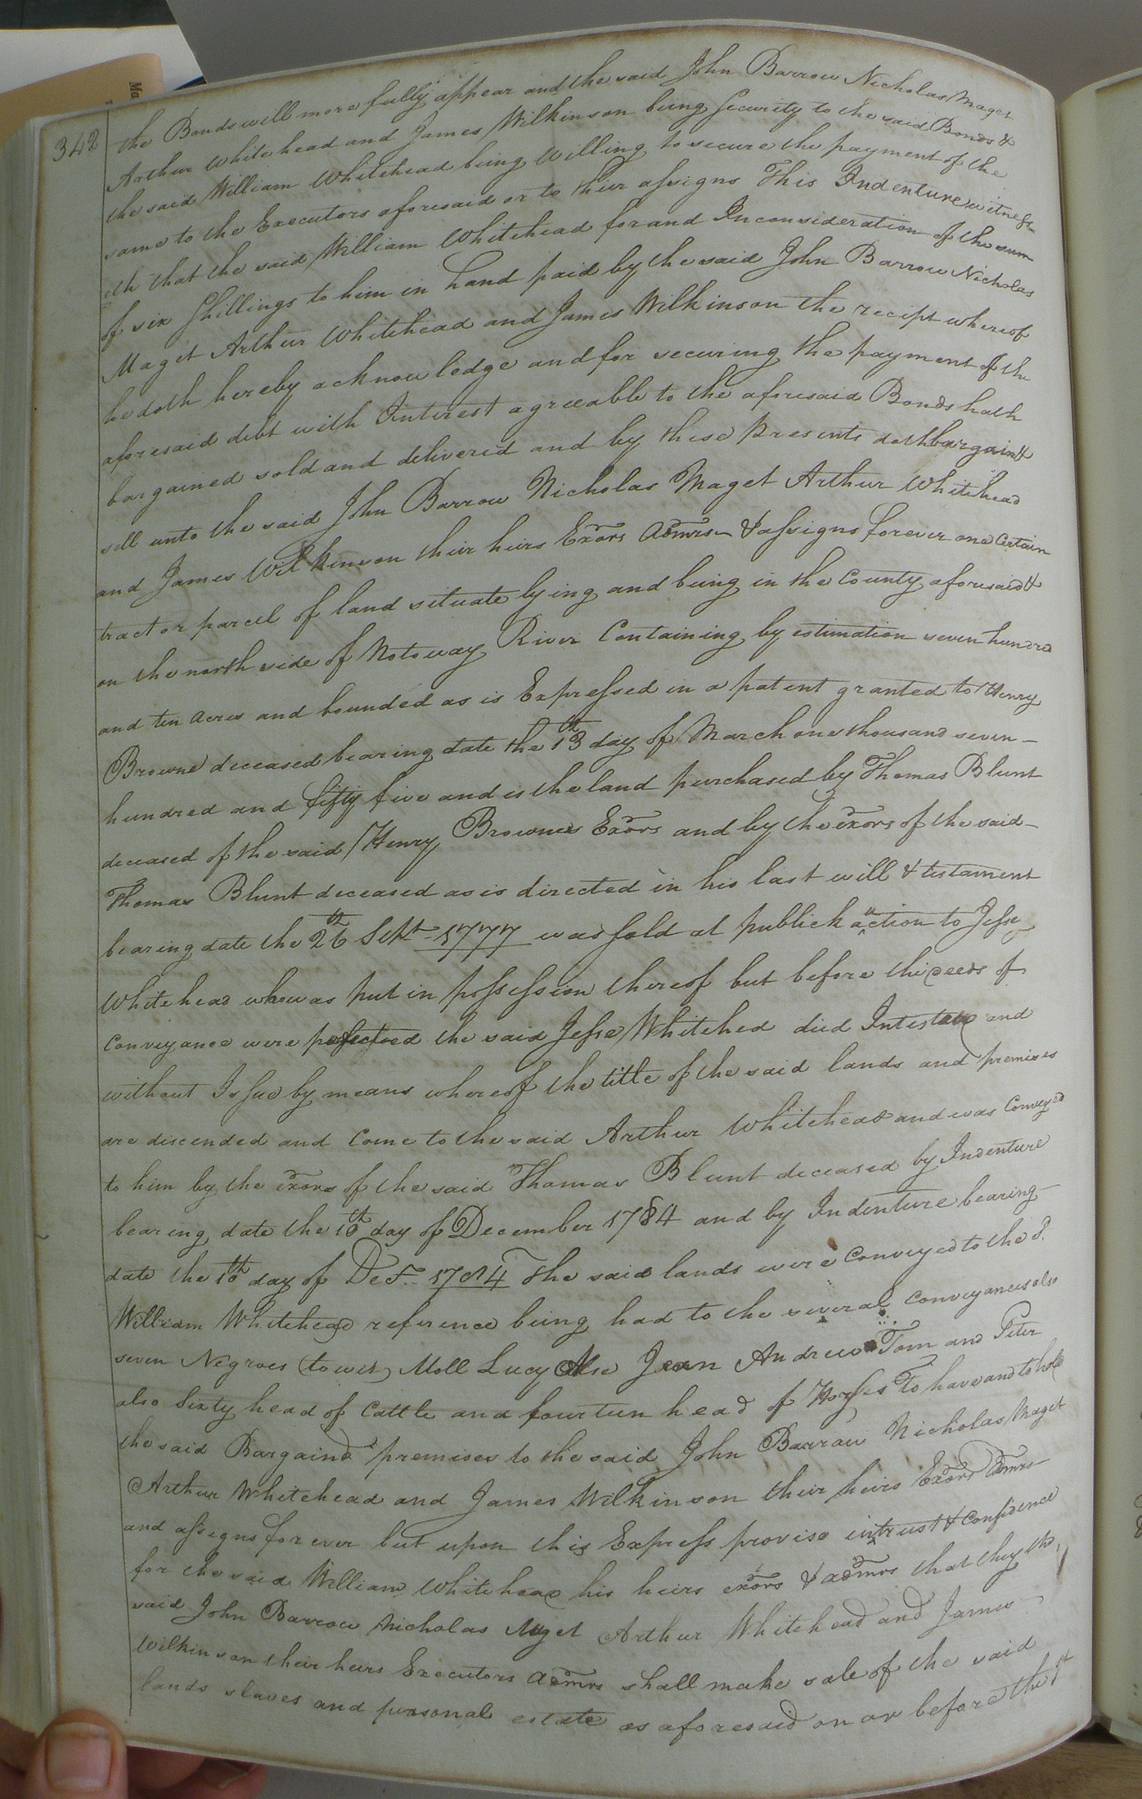 342
the Bonds will more fully appear and the said John Barrow Nicholas Maget
Arthur Whitehead and James Wilkinson being Security to the said Bonds &
the said William Whitehead being willing to secure the payment of the
same to the Executors aforesaid or to their assigns This Indenture witness
eth that the said William Whitehead for and Inconsideration of the sum
of six Shillings to him in hand paid by the said John Barrow Nicholas
Maget Arthur Whitehead and James Wilkinson the recipt whereof
he doth hereby acknowledge and for securing the payment of the
aforesaid debt with Interest agreeable to the aforesaid Bonds hath
bargained sold and delivered and by these presents doth bargain &
sell unto the said John Barrow Nicholas Maget Arthur Whitehead
and James Wilkinson their heirs Exors Admrs & assigns forever one certain
tract or parcel of land situate lying and being in the County aforesaid &
on the north side of Notoway River Containing by estimation seven hundred
and ten acres and bounded as is Expressed in a patent granted to Henry
Browne deceased bearing date the 13th day of March one thousand seven
hundred and fifty five and is the land purchased by Thomas Blunt
deceased of the said Henry Brownes Exors and by the exors of the said
Thomas Blunt deceased as is directed in his last will & testament
bearing date the 26th Sept 1777 was sold at publick auction to Jesse
Whitehead who was put in possession thereof but before the deeds of
conveyance were perfected the said Jesse Whitehed died Intestate and
without Issue by means whereof the title of the said lands and premises
are descended and come to the said Arthur Whitehead and was conveyed
to him by the exors of the said Thomas Blunt deceased by Indenture
bearing date the 16th day of December 1784 and by Indenture bearing
date the 16th day of Dec. 1784 The said lands were conveyed to the s.
William Whitehead reference being had to the several conveyances also
seven Negroes (to wit) Moll Lucy Alse Jean Andrew Tom and Peter
also Sixty head of Cattle and fourteen head of Horses To have and to hold
the said Bargaind premises to the said John Barraw Nicholas Maget
Arthur Whitehead and James Wilkinson their heirs Exors Admrs
and assigns forever but upon this Express proviso in trust & confidence
for the said William Whitehead his heirs exors & admrs that they the
said John Barrow Nicholas Maget Arthur Whitehead and James
Wilkinson their heirs Executors admrs shall make sale of the said
lands slaves and personal estate as aforesaid on or before the 1st